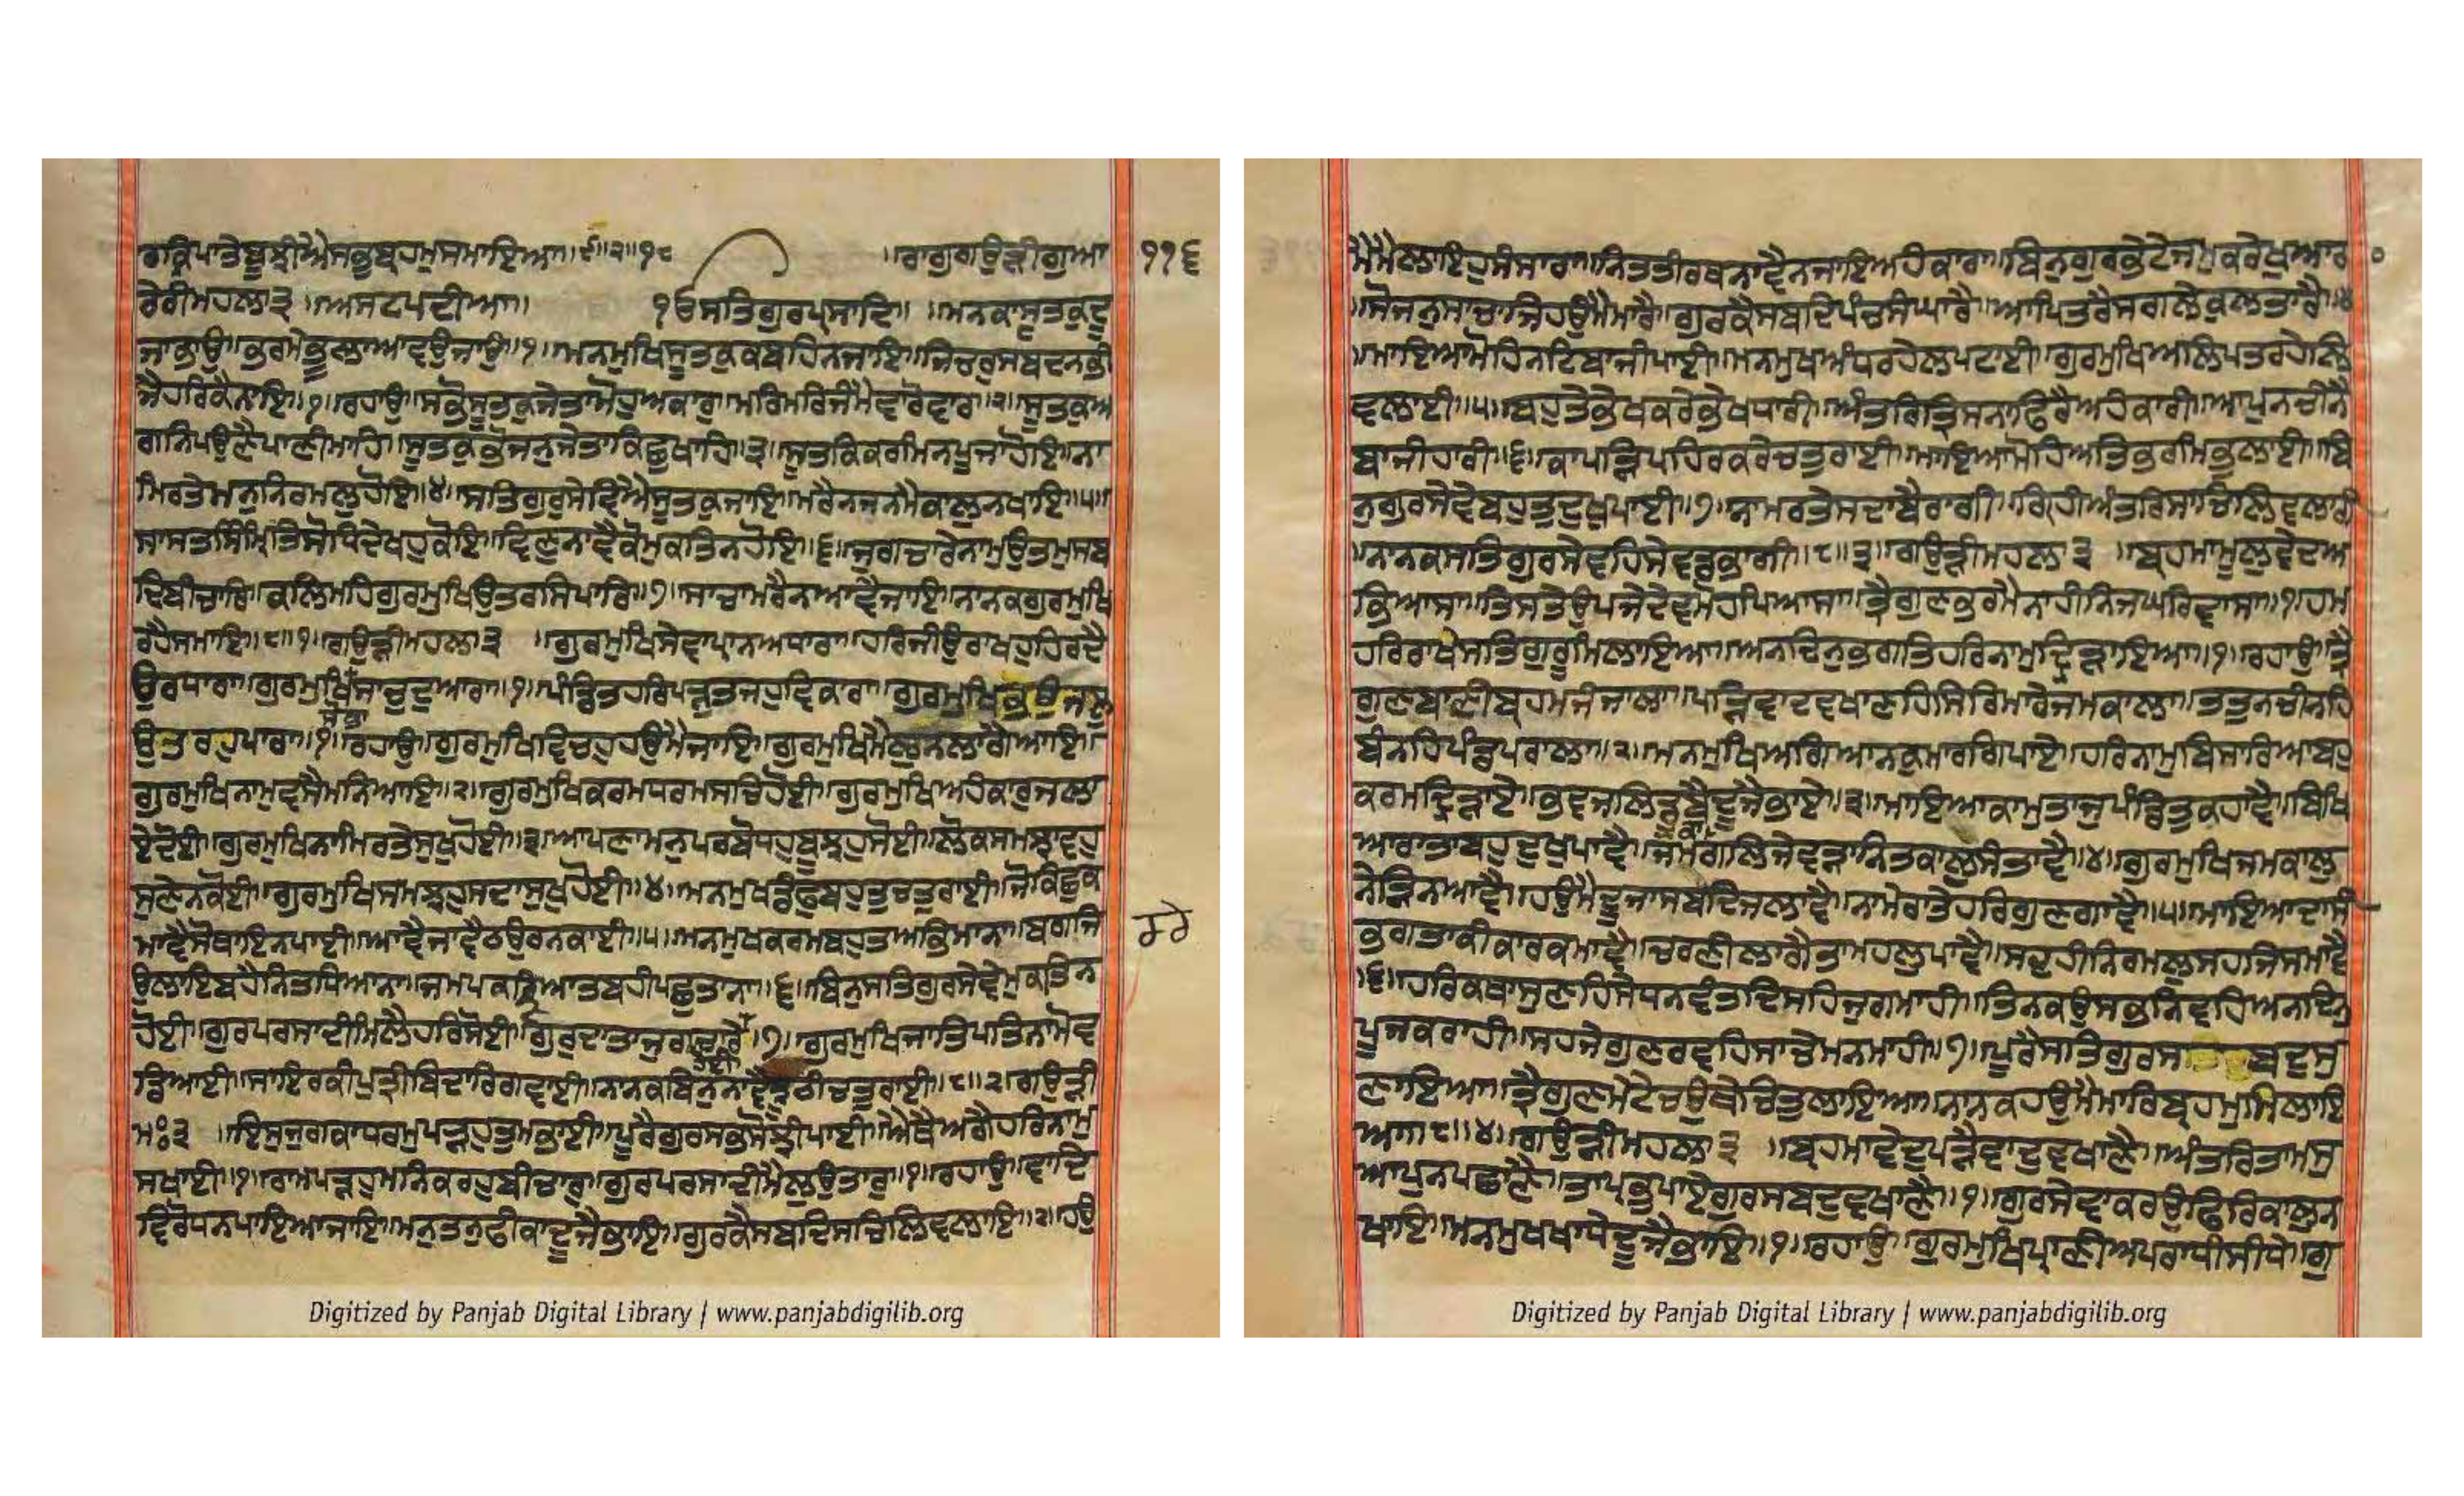 ਰਕ੍ਰਿਪਾਤੇਬੂਝੀਐਸਭੁਬ੍ਰਹਮੁਸਮਾਇਆ॥੯॥੨॥੧੮ ॥ਰਾਗੁਗਉੜੀਗੁਆ
੧੧੬
ਰੇਰੀਮਹਲਾ੩ ॥ਅਸਟਪਦੀਆ॥ ੧ੳਸਤਿਗੁਰਪ੍ਰਸਾਦਿ॥ ॥ਮਨਕਾਸੂਤਕੁਦੂ
ਜਾਭਾਉ॥ਭਰਮੇਭੂਲਾਆਵਉਜਾਉ॥੧॥ਮਨਮੁਖਿਸੂਤਕੁਕਬਹਿਨਜਾਇ॥ਜਿਚਰੁਸਬਦਨਭੀ
ਜੈਹਰਿਕੈਨਾਇ॥੧॥ਰਹਾਉ॥ਸਭੋਸੂਤਕੁਜੇਤਾਮੋਹੁਅਕਾਰੁ॥ਮਰਿਮਰਿਜੰਮੈਵਾਰੋਵਾਰ॥੨॥ਸੂਤਕੁਅ
ਗਨਿਪਉਣੈਪਾਣੀਮਾਹਿ॥ਸੂਤਕੁਭੋਜਨੁਜੇਤਾਕਿਛੁਖਾਹਿ॥੩॥ਸੂਤਕਿਕਰਮਿਨਪੂਜਾਹੋਇ॥ਨਾ
ਮਿਰਤੇਮਨੁਨਿਰਮਲੁਹੋਇ॥੪॥ਸਤਿਗੁਰੁਸੇਵਿਐਸੂਤਕੁਜਾਇ॥ਮਰੈਨਜਨਮੈਕਾਲੁਨਖਾਇ॥੫॥
ਸਾਸਤਸਿੰਮ੍ਰਿਤਿਸੋਧਿਦੇਖਹੁਕੋਇ॥ਵਿਣੁਨਾਵੈਕੋਮੁਕਤਿਨਹੋਇ॥੬॥ਜੁਗਚਾਰੇਨਾਮੁਉਤਮੁਸਬ
ਦਿਬੀਚਾਰਿ॥ਕਲਿਮਹਿਗੁਰਮੁਖਿਉਤਰਸਿਪਾਰਿ॥੭॥ਸਾਚਾਮਰੈਨਆਵੈਜਾਇ॥ਨਾਨਕਗੁਰਮੁਖਿ
ਰਹੈਸਮਾਇ॥੮॥੧॥ਗਉੜੀਮਹਲਾ੩ ॥ਗੁਰਮੁਖਿਸੇਵਾਪ੍ਰਾਨਅਧਾਰਾ॥ਹਰਿਜੀਉਰਾਖਹੁਹਿਰਦੈ
ਉਰਧਾਰਾ॥ਗੁਰਮੁਖਿਸਾਚੁਦੁਆਰਾ॥੧॥ਪੰਡਿਤਹਰਿਪੜੁਤਜਹੁਵਿਕਾਰਾ॥ਗੁਰਮੁਖਿਭਉਜਲੁ
ਉਤਰਹੁਪਾਰਾ॥੧॥ਰਹਾਉ॥ਗੁਰਮੁਖਿਵਿਚਹੁਹਉਮੈਜਾਇ॥ਗੁਰਮੁਖਿਮੈਲੁਨਲਾਗੈਆਇ॥
ਗੁਰਮੁਖਿਨਾਮੁਵਸੈਮਨਿਆਇ॥੨॥ਗੁਰਮੁਖਿਕਰਮਧਰਮਸਚਿਹੋਈ॥ਗੁਰਮੁਖਿਅਹੰਕਾਰੁਜਲਾ
ਏਦੋਈ॥ਗੁਰਮੁਖਿਨਾਮਿਰਤੇਸੁਖੁਹੋਈ॥੩॥ਆਪਣਾਮਨੁਪਰਬੋਧਹੁਬੂਝਹੁਸੋਈ॥ਲੋਕਸਮਝਾਵਹੁ
ਸੁਣੇਨਕੋਈ॥ਗੁਰਮੁਖਿਸਮਝਹੁਸਦਾਸੁਖੁਹੋਈ॥੪॥ਮਨਮੁਖਡੰਫੁਬਹੁਤੁਚਤੁਰਾਈ॥ਜੋਕਿਛੁਕ
ਮਾਵੈਸੋਥਾਇਨਪਾਈ॥ਆਵੈਜਾਵੈਠਉਰਨਕਾਈ॥੫॥ਮਨਮੁਖਕਰਮਬਹੁਤਅਭਿਮਾਨਾ॥ਬਗਜਿ
ਉਲਾਇਬਹੈਨਿਤਧਿਆਨਾ॥ਜਮਪਕੜਿਆਤਬਹੀਪਛੁਤਾਨਾ॥੬॥ਬਿਨੁਸਤਿਗੁਰਸੇਵੇਮੁਕਤਿਨ
ਹੋਈ॥ਗੁਰਪਰਸਾਦੀਮਿਲੈਹਰਿਸੋਈ॥ਗੁਰੁਦਾਤਾਜੁਗਚਾਰੇ॥੭॥ਗੁਰਮੁਖਿਜਾਤਿਪਤਿਨਾਮੇਵ
ਡਿਆਈ॥ਸਾਇਰਕੀਪੁਤ੍ਰੀਬਿਦਾਰਿਗਵਾਈ॥ਨਾਨਕਬਿਨੁਨਾਵੈਝੂਠੀਚਤੁਰਾਈ॥੮॥੨॥ਗਉੜੀ
ਮਃ੩ ॥ਇਸੁਜੁਗਕਾਧਰਮੁਪੜਹੁਤੁਮਭਾਈ॥ਪੂਰੈਗੁਰਸਭਸੋਝੀਪਾਈ॥ਐਥੈਅਗੈਹਰਿਨਾਮੁ
ਸਖਾਈ॥੧॥ਰਾਮਪੜਹੁਮਨਿਕਰਹੁਬੀਚਾਰੁ॥ਗੁਰਪਰਸਾਦੀਮੈਲੁਉਤਾਰੁ॥੧॥ਰਹਾਉ॥ਵਾਦਿ
ਵਿਰੋਧਨਪਾਇਆਜਾਇ॥ਮਨੁਤਨੁਫੀਕਾਦੂਜੈਭਾਇ॥ਗੁਰਕੈਸਬਦਿਸਚਿਲਿਵਲਾਇ॥੨॥ਹਉ
Digitized by Panjab Digital Library | www.panjabdigilib.org
ਮੈਮੈਲਾਇਹੁਸੰਸਾਰਾ॥ਨਿਤਤੀਰਥਨਾਵੈਨਜਾਇਅਹੰਕਾਰਾ॥ਬਿਨੁਗੁਰਭੇਟੇਜਮੁਕਰੇਖੁਆਰ
॥ਸੋਜਨੁਸਾਚਾਜਿਹਉਮੈਮਾਰੈ॥ਗੁਰਕੈਸਬਦਿਪੰਚਸੰਘਾਰੈ॥ਆਪਿਤਰੈਸਗਲੇਕੁਲਤਾਰੈ॥੪
॥ਮਾਇਆਮੋਹਿਨਟਿਬਾਜੀਪਾਈ॥ਮਨਮੁਖਅੰਧਰਹੇਲਪਟਾਈ॥ਗੁਰਮੁਖਿਅਲਿਪਤਰਹੇਲਿ
ਵਲਾਈ॥੫॥ਬਹੁਤੇਭੇਖਕਰੇਭੇਖਧਾਰੀ॥ਅੰਤਰਿਤਿਸਨਾਫਿਰੈਅਹੰਕਾਰੀ॥ਆਪੁਨਚੀਨੈ
ਬਾਜੀਹਾਰੀ॥੬॥ਕਾਪੜਿਪਹਿਰਕਰੇਚਤੁਰਾਈ॥ਮਾਇਆਮੋਹਿਅਤਿਭਰਮਿਭੁਲਾਈ॥ਬਿ
ਨੁਗੁਰਸੇਵੇਬਹੁਤੁਦੁਖੁਪਾਈ॥੭॥ਨਾਮਰਤੇਸਦਾਬੈਰਾਗੀ॥ਗ੍ਰਿਹੀਅੰਤਰਿਸਾਚਿਲਿਵਲਾਗੀ
॥ਨਾਨਕਸਤਿਗੁਰਸੇਵਹਿਸੇਵਡਭਾਗੀ॥੮॥੩॥ਗਉੜੀਮਹਲਾ੩ ॥ਬ੍ਰਹਮਾਮੂਲੁਵੇਦਅ
ਭਿਆਸਾ॥ਤਿਸਤੇਉਪਜੇਦੇਵਮੋਹਪਿਆਸਾ॥ਤ੍ਰੈਗੁਣਭਰਮੇਨਾਹੀਨਿਜਘਰਿਵਾਸਾ॥੧॥ਹਮ
ਹਰਿਰਾਖੇਸਤਿਗੁਰੂਮਿਲਾਇਆ॥ਅਨਦਿਨੁਭਗਤਿਹਰਿਨਾਮੁਦ੍ਰਿੜਾਇਆ॥੧॥ਰਹਾਉ॥ਤ੍ਰੈ
ਗੁਣਬਾਣੀਬ੍ਰਹਮਜੰਜਾਲਾ॥ਪੜਿਵਾਦਵਖਾਣਹਿਸਿਰਿਮਾਰੇਜਮਕਾਲਾ॥ਤਤੁਨਚੀਨਹਿ
ਬੰਨਹਿਪੰਡਪਰਾਲਾ॥੨॥ਮਨਮੁਖਿਅਗਿਆਨਕੁਮਾਰਗਿਪਾਏ॥ਹਰਿਨਾਮੁਬਿਸਾਰਿਆਬਹੁ
ਕਰਮਦ੍ਰਿੜਾਏ॥ਭਵਜਲਿਡੂਬੇਦੂਜੈਭਾਏ॥੩॥ਮਾਇਆਕਾਮੁਤਾਜੁਪੰਡਿਤੁਕਹਾਵੈ॥ਬਿਖਿ
ਆਰਾਤਾਬਹੁਦੁਖੁਪਾਵੈ॥ਜਮਗਲਿਜੇਵੜਾਨਿਤਕਾਲੁਸੰਤਾਵੈ॥੪॥ਗੁਰਮੁਖਿਜਮਕਾਲੁ
ਨੇੜਿਨਆਵੈ॥ਹਉਮੈਦੂਜਾਸਬਦਿਜਲਾਵੈ॥ਨਾਮੇਰਾਤੇਹਰਿਗੁਣਗਾਵੈ॥੫॥ਮਾਇਆਦਾਸੀ
ਭਗਤਾਕੀਕਾਰਕਮਾਵੈ॥ਚਰਣੀਲਾਗੈਤਾਮਹਲੁਪਾਵੈ॥ਸਦਹੀਨਿਰਮਲੁਸਹਜਿਸਮਾਵੈ
॥੬॥ਹਰਿਕਥਾਸੁਣਹਿਸੇਧਨਵੰਤਦਿਸਹਿਜੁਗਮਾਹੀ॥ਤਿਨਕਉਸਭਨਿਵਹਿਅਨਦਿਨੁ
ਪੂਜਕਰਾਹੀ॥ਸਹਜੇਗੁਣਰਵਹਿਸਾਚੇਮਨਮਾਹੀ॥੭॥ਪੂਰੈਸਤਿਗੁਰਸਬਦੁਸੁ
ਣਾਇਆ॥ਤ੍ਰੈਗੁਣਮੇਟੇਚਉਥੈਚਿਤੁਲਾਇਆ॥ਨਾਨਕਹਉਮੈਮਾਰਿਬ੍ਰਹਮੁਮਿਲਾਇ
ਆ॥੮॥੪॥ਗਉੜੀਮਹਲਾ੩ ॥ਬ੍ਰਹਮਾਵੇਦੁਪੜੈਵਾਦੁਵਖਾਣੈ॥ਅੰਤਰਿਤਾਮਸੁ
ਆਪੁਨਪਛਾਣੈ॥ਤਾਪ੍ਰਭੁਪਾਏਗੁਰਸਬਦੁਵਖਾਣੈ॥੧॥ਗੁਰਸੇਵਾਕਰਉਫਿਰਿਕਾਲੁਨ
ਖਾਇ॥ਮਨਮੁਖਖਾਧੇਦੂਜੈਭਾਇ॥੧॥ਰਹਾਉ॥ਗੁਰਮੁਖਿਪ੍ਰਾਣੀਅਪਰਾਧੀਸੀਧੇ॥ਗੁ
Digitized by Panjab Digital Library | www.panjabdigilib.org